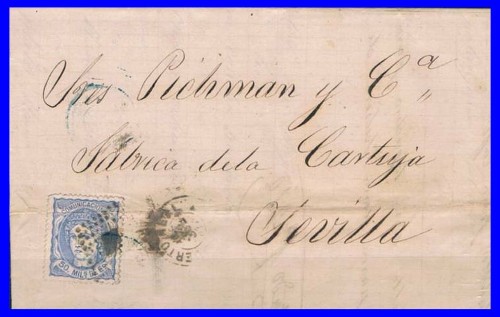 Sres Pichman y Cª
Fabrica dela Cartuja
Sevilla
COMUNICACIONES
50 MILS DE Eº